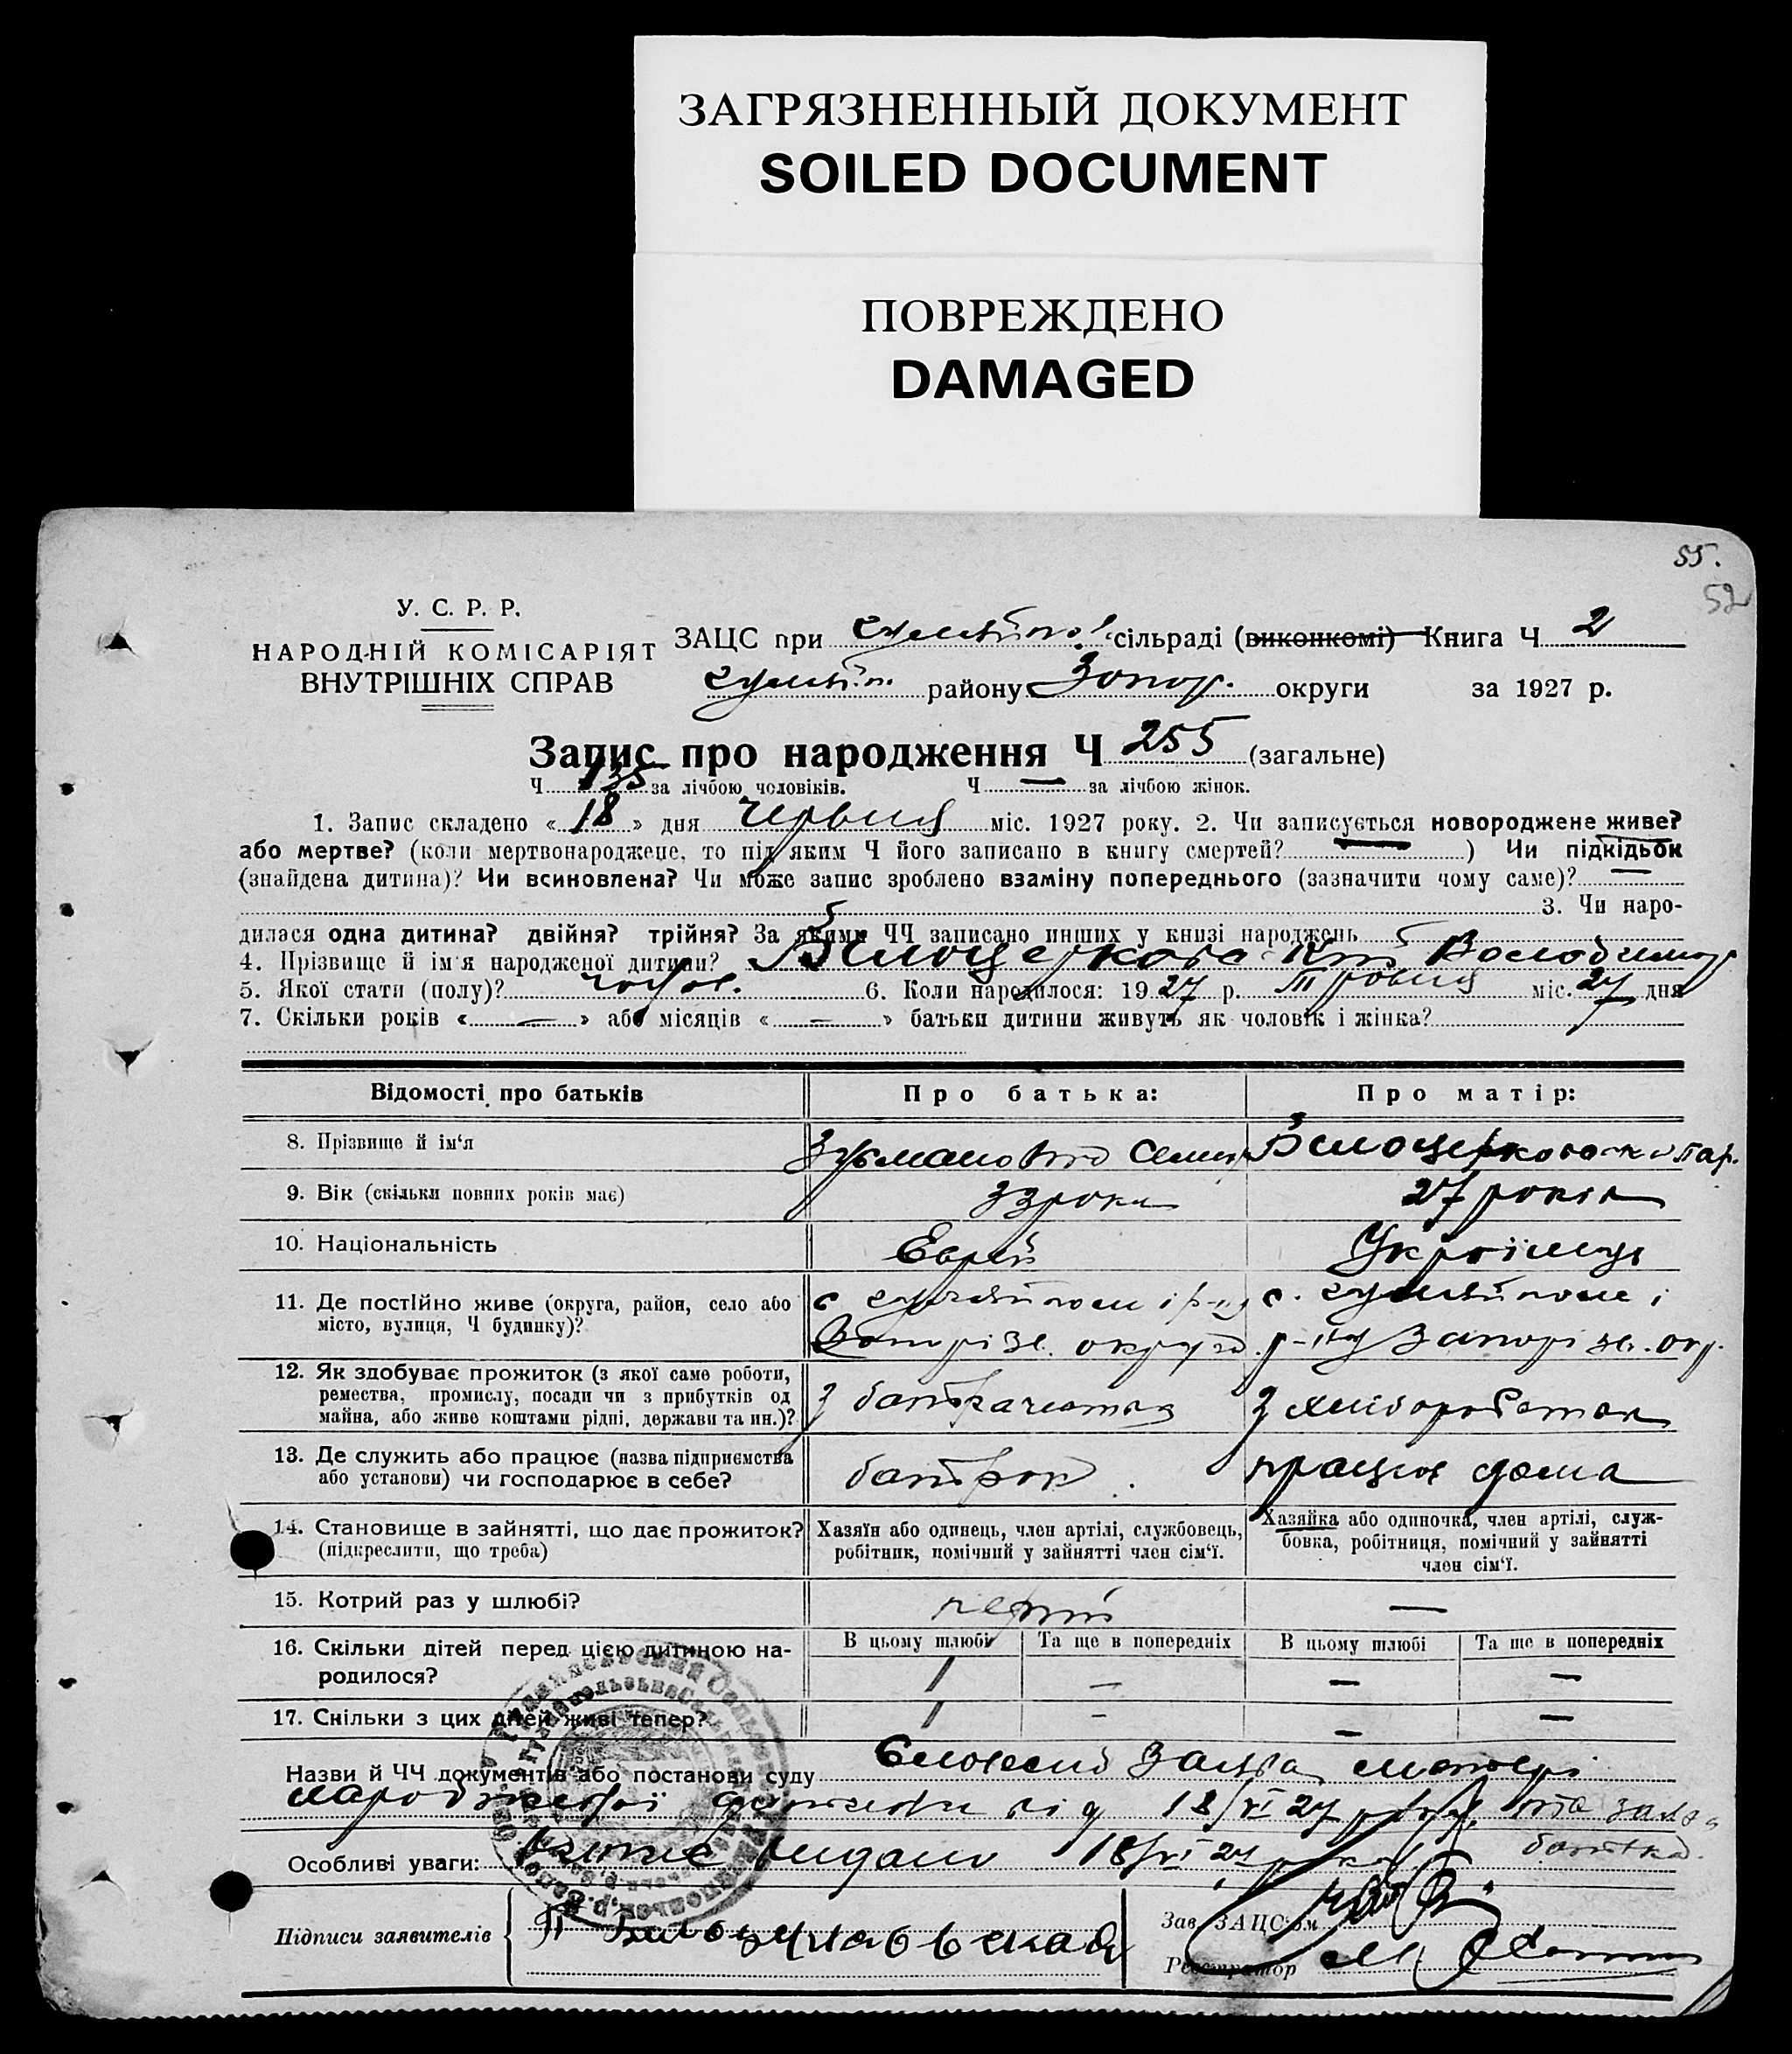 ЗАГРЯЗНЕННЫЙ ДОКУМЕНТ
SOILED DOCUMENT
ПОВРЕЖДЕНО
DAMAGED
55.
52
У. С. Р. Р.
НАРОДНІЙ КОМІСАРІЯТ
ВНУТРІШНІХ СПРАВ
ЗАЦС при сільраді (виконкомі) Книга Ч 2
району Запор. округи за 1927 р.
Запис про народження Ч 255 (загальне)
Ч 135 за лічбою чоловіків. Ч — за лічбою жінок.
1. Запис складено « 18 » дня червня міс. 1927 року. 2. Чи записується новороджене живе?
або мертве? (коли мертвонароджене, то під яким Ч його записано в книгу смертей? — ) Чи підкідьок
(знайдена дитина)? Чи всиновлена? Чи може запис зроблено взаміну попереднього (зазначити чому саме)? —
3. Чи наро-
дилася одна дитина? двійня? трійня? За якими ЧЧ записано инших у книзі народжень
4. Прізвище й ім'я народженої дитини? Володимир
5. Якої стати (полу)? чолов. 6. Коли народилося: 19 27 р. Травня міс. 27 дня
7. Скільки років « — » або місяців « — » батьки дитини живуть як чоловік і жінка?
Відомості про батьків Про батька: Про матір:
8. Прізвище й ім'я
9. Вік (скільки повних років має) 33 роки 27 років
10. Національність Еврей Українця
11. Де постійно живе (округа, район, село або
місто, вулиця, Ч будинку)?
Запоріз. округа р-ну Запоріз. окр.
12. Як здобуває прожиток (з якої саме роботи,
ремества, промислу, посади чи з прибутків од
майна, або живе коштами рідні, держави та ин.)?
з батрацтва з хліборобства
13. Де служить або працює (назва підприємства
або установи) чи господарює в себе?
батрак працює дома
14. Становище в зайнятті, що дає прожиток?
(підкреслити, що треба)
Хазяїн або одинець, член артілі, службовець,
робітник, помічний у зайнятті член сім'ї.
Хазяйка або одиночка, член артілі, служ-
бовка, робітниця, помічний у зайнятті
член сім'ї.
15. Котрий раз у шлюбі? —
16. Скільки дітей перед цією дитиною на-
родилося?
В цьому шлюбі Та ще в попередніх В цьому шлюбі Та ще в попередніх
1 — — —
17. Скільки з цих дітей живі тепер? 1 — — —
Назви й ЧЧ документів або постанови суду Словесна заява матері
народженої дитини від 18/VI 27 року та заява
батька.
Особливі уваги: видано 18/VI 27 року
Підписи заявителів
Зав. ЗАЦС'ом
Реєстратор